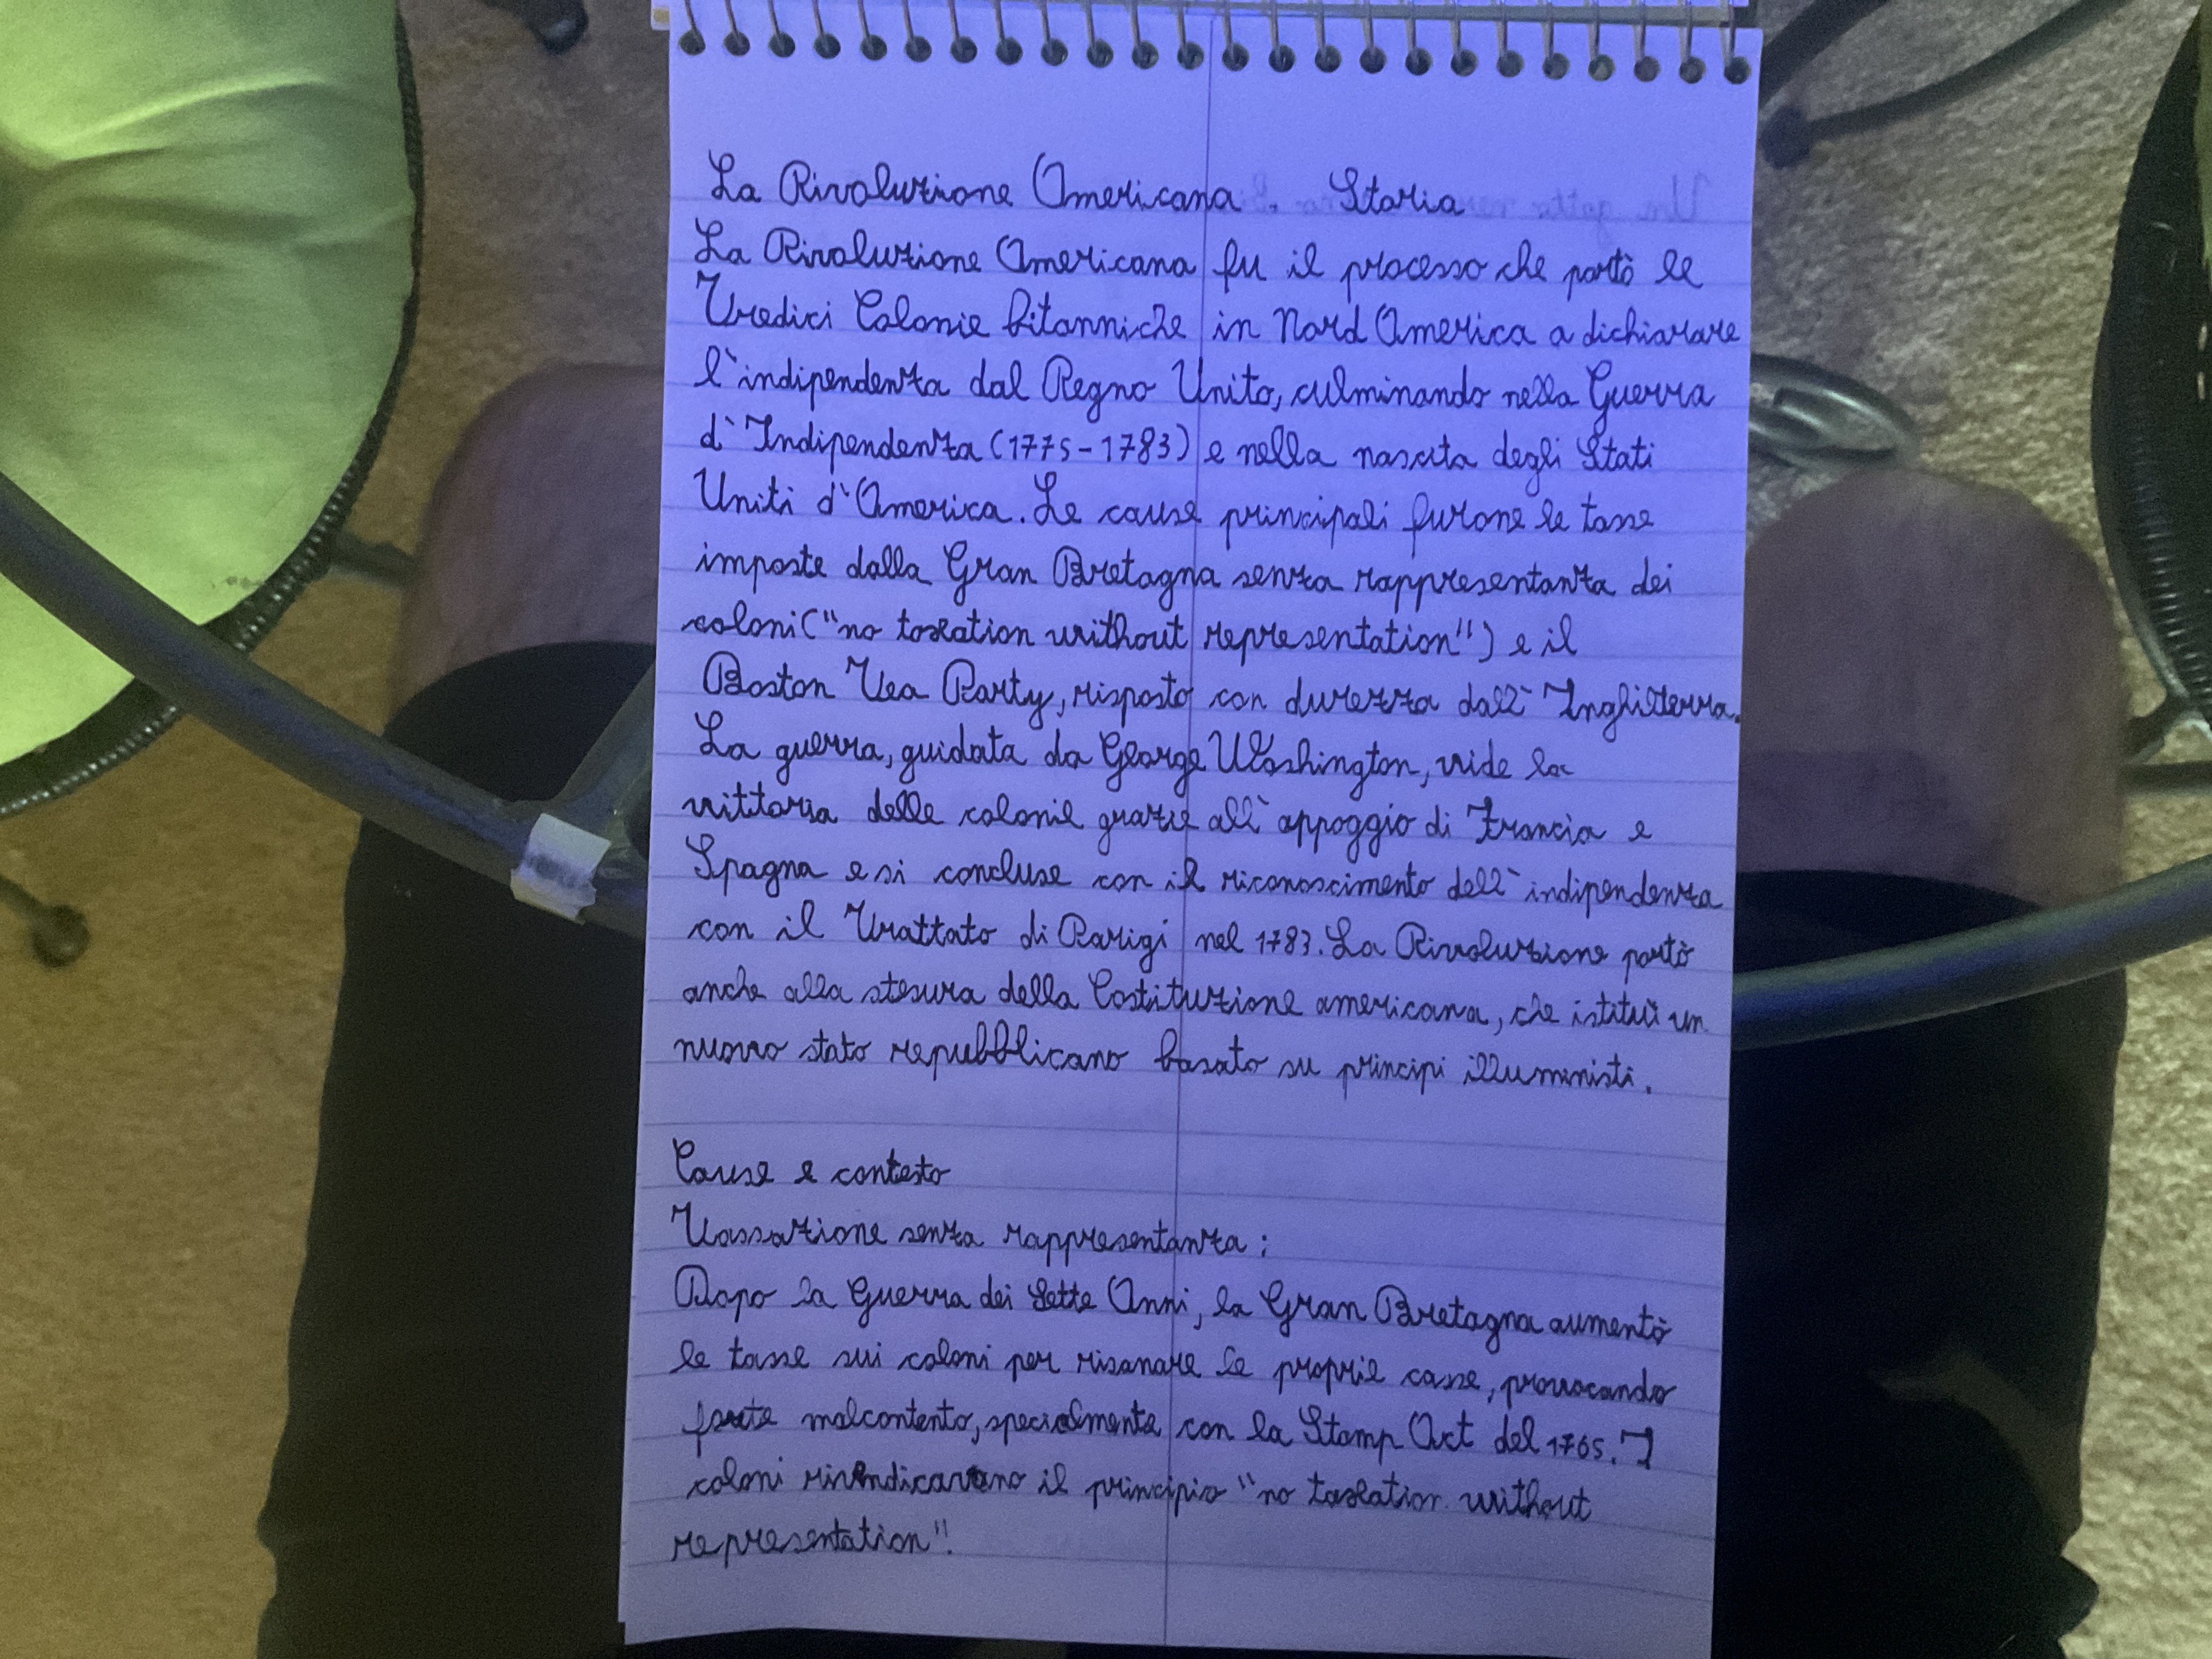 La Rivoluzione Americana. Storia
La Rivoluzione Americana fu il processo che portò le
Tredici Colonie bitanniche in Nord America a dichiarare
l'indipendenza dal Regno Unito, culminando nella Guerra
d'Indipendenza (1775-1783) e nella nascita degli Stati
Uniti d'America. Le cause principali furone le tasse
imposte dalla Gran Bretagna senza rappresentanza dei
coloni ("no taxation without representation") e il
Boston Tea Party, risposto con durezza dall'Inghilterra.
La guerra, guidata da George Washington, vide la
vittoria delle colonie grazie all'appoggio di Francia e
Spagna e si concluse con il riconoscimento dell'indipendenza
con il Trattato di Parigi nel 1783. La Rivoluzione portò
anche alla stesura della Costituzione americana, che istituì un
nuovo stato repubblicano basato su principi illuministi.
Cause e contesto
Tassazione senza rappresentanza:
Dopo la Guerra dei Sette Anni, la Gran Bretagna aumentò
le tasse sui coloni per risanare le proprie casse, provocando
forte malcontento, specialmente con la Stamp Act del 1765. I
coloni rivendicavano il principio "no taxation without
representation".